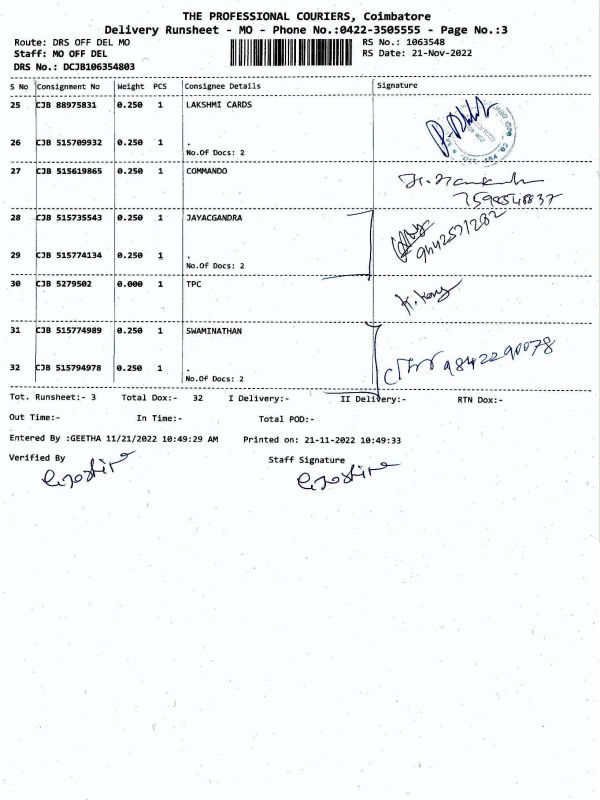 THE PROFESSIONAL COURIERS, Coimbatore
Delivery Runsheet - MO - Phone No.:0422-3505555 - Page No.:3
Route: DRS OFF DEL MO RS No.: 1063548
Staff: MO OFF DEL RS Date: 21-Nov-2022
DRS No.: DCJB106354803
S No Consignment No Weight PCS Consignee Details Signature
25 CJB 88975831 0.250 1 LAKSHMI CARDS
26 CJB 515709932 0.250 1 .
No.Of Docs: 2
27 CJB 515619865 0.250 1 COMMANDO
7598548837
28 CJB 515735543 0.250 1 JAYACGANDRA
9442571282
29 CJB 515774134 0.250 1 .
No.Of Docs: 2
30 CJB 5279502 0.000 1 TPC
31 CJB 515774989 0.250 1 SWAMINATHAN
9842290078
32 CJB 515794978 0.250 1 .
No.Of Docs: 2
Tot. Runsheet:- 3 Total Dox:- 32 I Delivery:- II Delivery:- RTN Dox:-
Out Time:- In Time:- Total POD:-
Entered By :GEETHA 11/21/2022 10:49:29 AM Printed on: 21-11-2022 10:49:33
Verified By Staff Signature